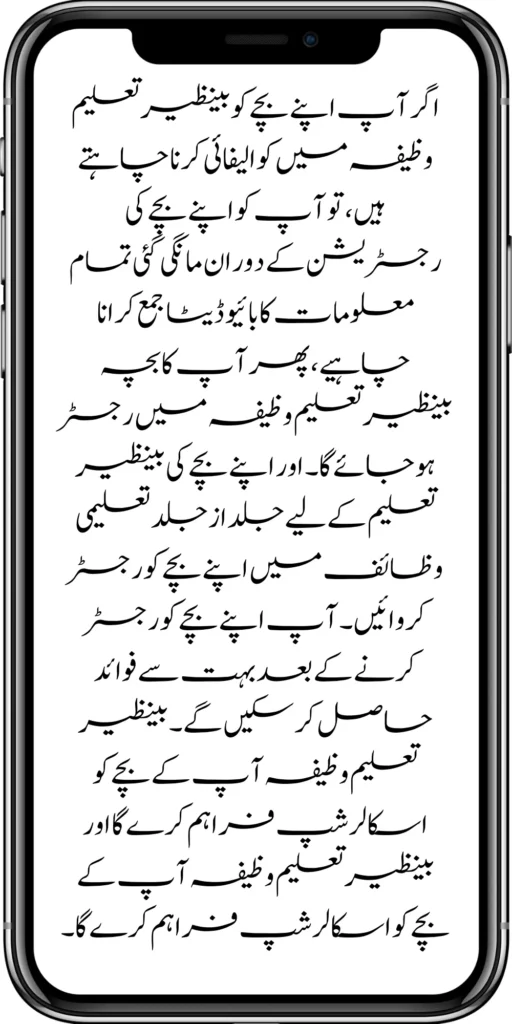 اگر آپ اپنے بچے کو بینظیر تعلیم
وظیفہ میں کوالیفائی کرنا چاہتے
ہیں، تو آپ کو اپنے بچے کی
رجسٹریشن کے دوران مانگی گئی تمام
معلومات کا بائیو ڈیٹا جمع کرانا
چاہیے، پھر آپ کا بچہ
بینظیر تعلیم وظیفہ میں رجسٹر
ہو جائے گا۔ اور اپنے بچے کی بینظیر
تعلیم کے لیے جلد از جلد تعلیمی
وظائف میں اپنے بچے کو رجسٹر
کروائیں۔ آپ اپنے بچے کو رجسٹر
کرنے کے بعد بہت سے فوائد
حاصل کر سکیں گے۔ بینظیر
تعلیم وظیفہ آپ کے بچے کو
اسکالرشپ فراہم کرے گا اور
بینظیر تعلیم وظیفہ آپ کے
بچے کو اسکالرشپ فراہم کرے گا۔